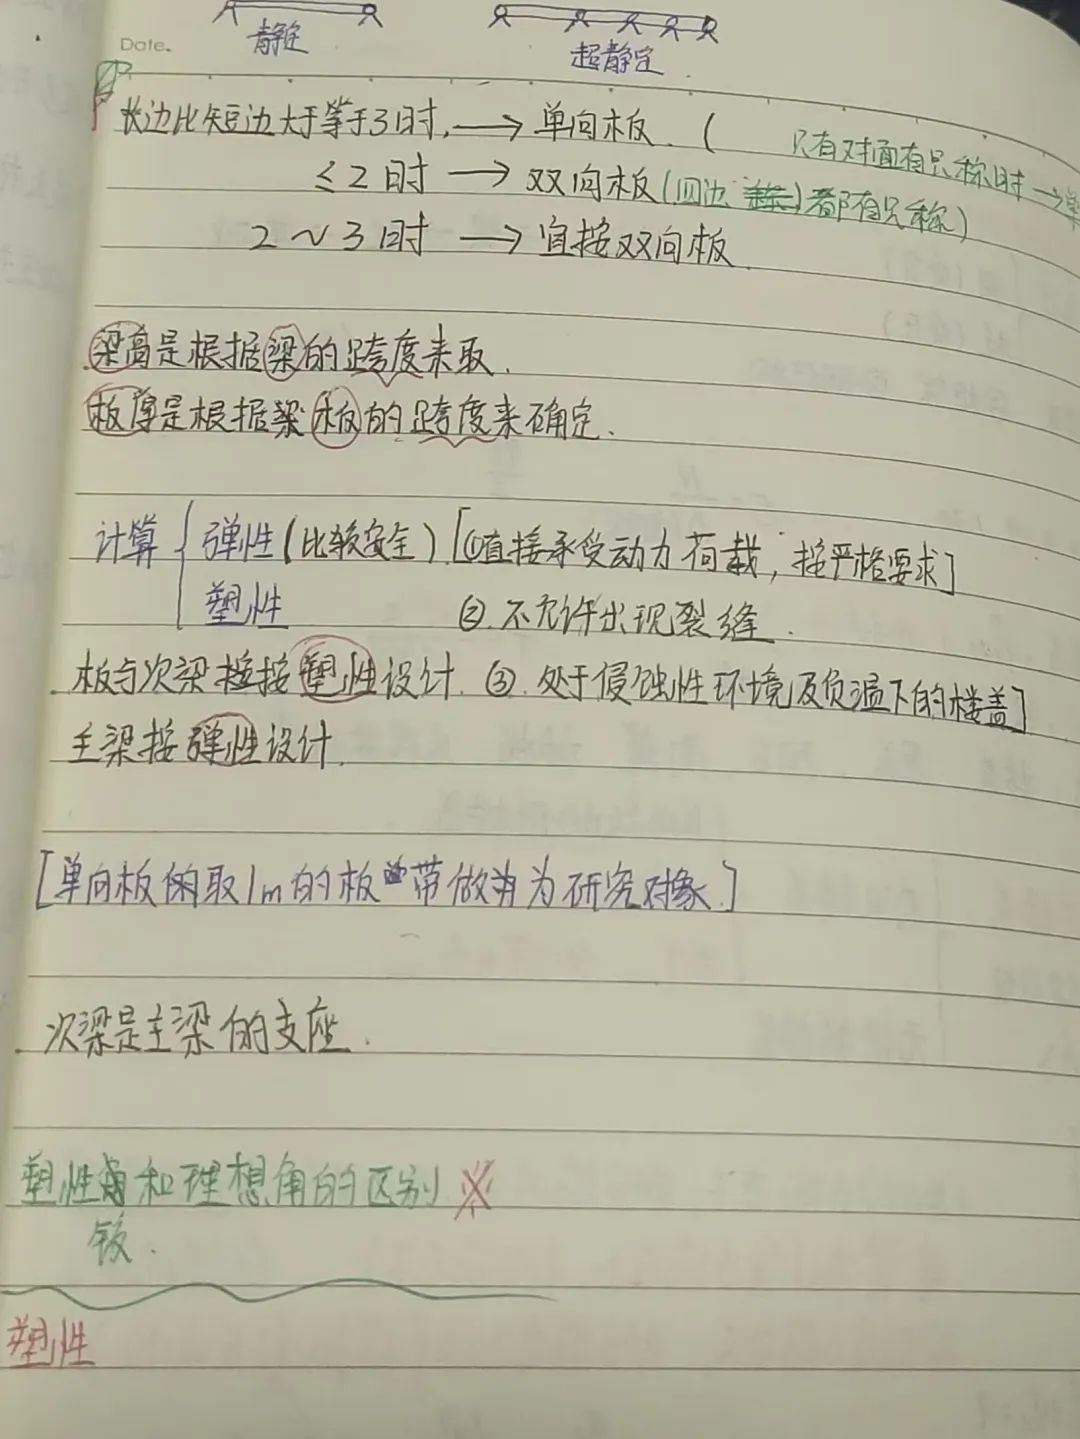 Date.
静定 超静定
长边比短边大于等于3时, → 单向板. ( 只有对面有只称时 →
≤2时 → 双向板(四边 都有只称)
2~3时 → 宜按双向板
梁高是根据梁的跨度来取.
板厚是根据梁板的跨度来确定.
计算 { 弹性(比较安全) [①直接承受动力荷载, 按严格要求]
塑性 ②. 不允许出现裂缝.
板与次梁 按按塑性设计. ③. 处于侵蚀性环境及负温下的楼盖]
主梁按弹性设计.
[单向板 取1m的板 带做为研究对象.]
次梁是主梁的支座.
塑性 和理想角的区别 ※
铰.
塑性